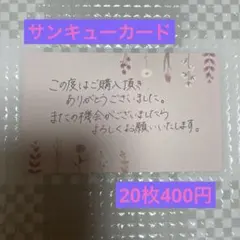 サンキューカード
この度はご購入頂き
ありがとうございました。
またの機会がございましたら
よろしくお願いいたします。
20枚400円